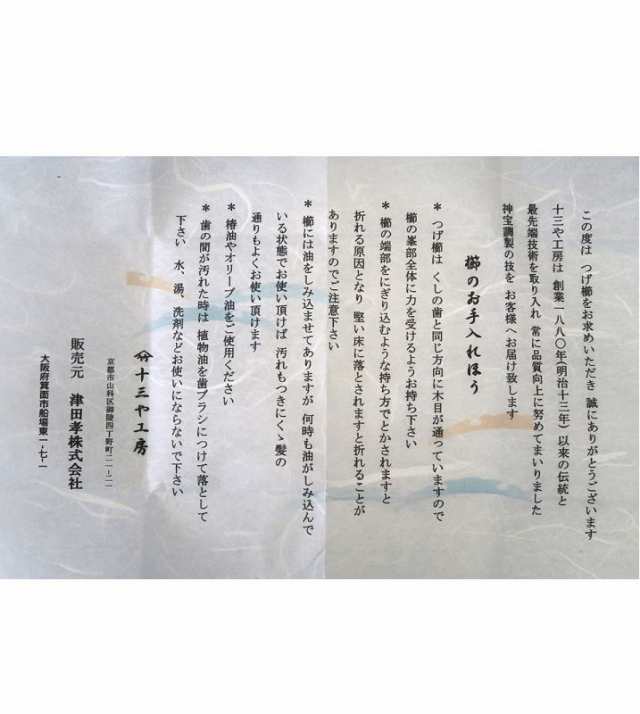 この度は つげ櫛をお求めいただき 誠にありがとうございます
十三や工房は 創業一八八〇年(明治十三年)以来の伝統と
最先端技術を取り入れ 常に品質向上に努めてまいりました
神宝調製の技を お客様へお届け致します
櫛のお手入れほう
＊ つげ櫛は くしの歯と同じ方向に木目が通っていますので
櫛の峯部全体に力を受けるようお持ち下さい
＊ 櫛の端部をにぎり込むような持ち方でとかされますと
折れる原因となり 堅い床に落とされますと折れることが
ありますのでご注意下さい
＊ 櫛には油をしみ込ませてありますが 何時も油がしみ込んで
いる状態でお使い頂けば 汚れもつきにくゝ髪の
通りもよくお使い頂けます
＊ 椿油やオリーブ油をご使用ください
＊ 歯の間が汚れた時は 植物油を歯ブラシにつけて落として
下さい 水、湯、洗剤などお使いにならないで下さい
十三や工房
京都市山科区御陵四丁野町二一−二
販売元 津田孝株式会社
大阪府箕面市船場東一-七-一